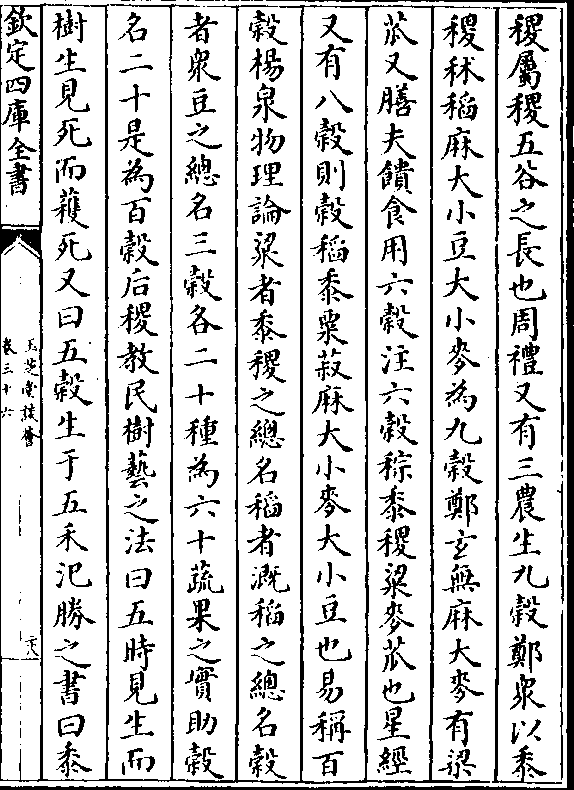 稷屬稷五谷之長也周禮又有三農生九穀鄭衆以黍
稷秫稻麻大小豆大小麥為九穀鄭玄無麻大麥有粱
苽又膳夫饋食用六穀注六穀稌黍稷粱麥苽也星經
又有八穀則穀稻黍粟菽麻大小麥大小豆也易稱百
穀楊泉物理論粱者黍稷之總名稻者溉稻之總名穀
者衆豆之總名三穀各二十種為六十蔬果之實助穀
名二十是為百穀后稷教民樹藝之法曰五時見生而
樹生見死而蓷死又曰五穀生于五禾氾勝之書曰黍
欽定四庫全書
玉芝堂談薈
卷三十六
二十八